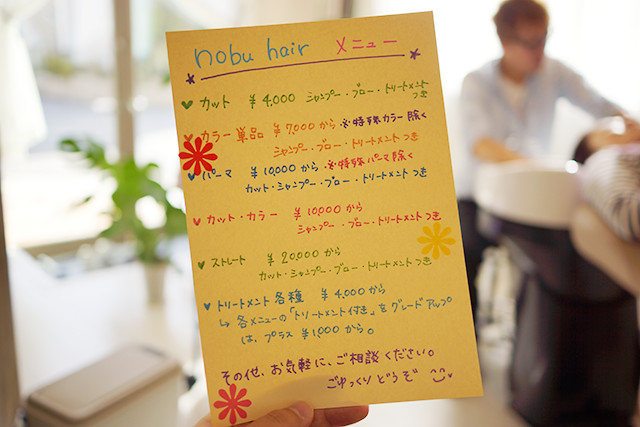 nobu hair メニュー
カット ¥4,000 シャンプー・ブロー・トリートメント
つき
カラー単品 ¥7,000から ※特殊カラー除く
シャンプー・ブロー・トリートメントつき
パーマ ¥10,000から ※特殊パーマ除く
カット・シャンプー・ブロー・トリートメントつき
カット・カラー ¥10,000から
シャンプー・ブロー・トリートメントつき
ストレート ¥20,000から
カット・シャンプー・ブロー・トリートメントつき
トリートメント各種 ¥4,000から
↳ 各メニューの「トリートメント付き」をグレードアップ
は、プラス ¥1,000から。
その他、お気軽に、ご相談ください。
ごゆっくりどうぞ